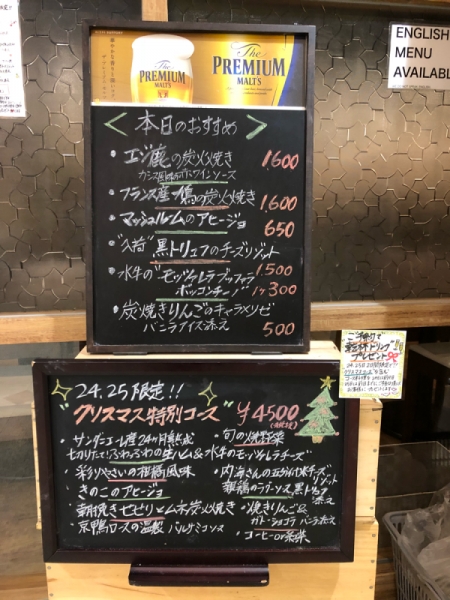 The PREMIUM MALT'S
The PREMIUM MALT'S
ENGLISH
MENU
AVAILABLE
<本日のおすすめ>
・エゾ鹿の炭火焼き 1,600
カシス風味の赤ワインソース
・フランス産 鶉の炭火焼き 1,600
・マッシュルームのアヒージョ 650
・"入荷" 黒トリュフのチーズリゾット 1,500
・水牛の"モッツァレラブッファラ
ボッコンチーノ" 1ケ300
・炭焼きりんごのキャラメリゼ
バニラアイス添え 500
ご予約で
乾杯ドリンク
プレゼント
24.25限定!!
"クリスマス特別コース" ¥4500
・サンダニエーレ産24ヶ月熟成
切りたて!ふわふわの生ハム&水牛のモッツァレラチーズ
・彩りやさいの柑橘風味
・きのこのアヒージョ
・朝挽きセセリとムネ炭火焼き
・京鴨ロースの燻製 バルサミコソース
・旬の焼野菜
・内海さんの五分づき米チーズリゾット
黒トリュフ添え
・焼きりんご&
ガトーショコラ バニラ添え
・コーヒーor紅茶